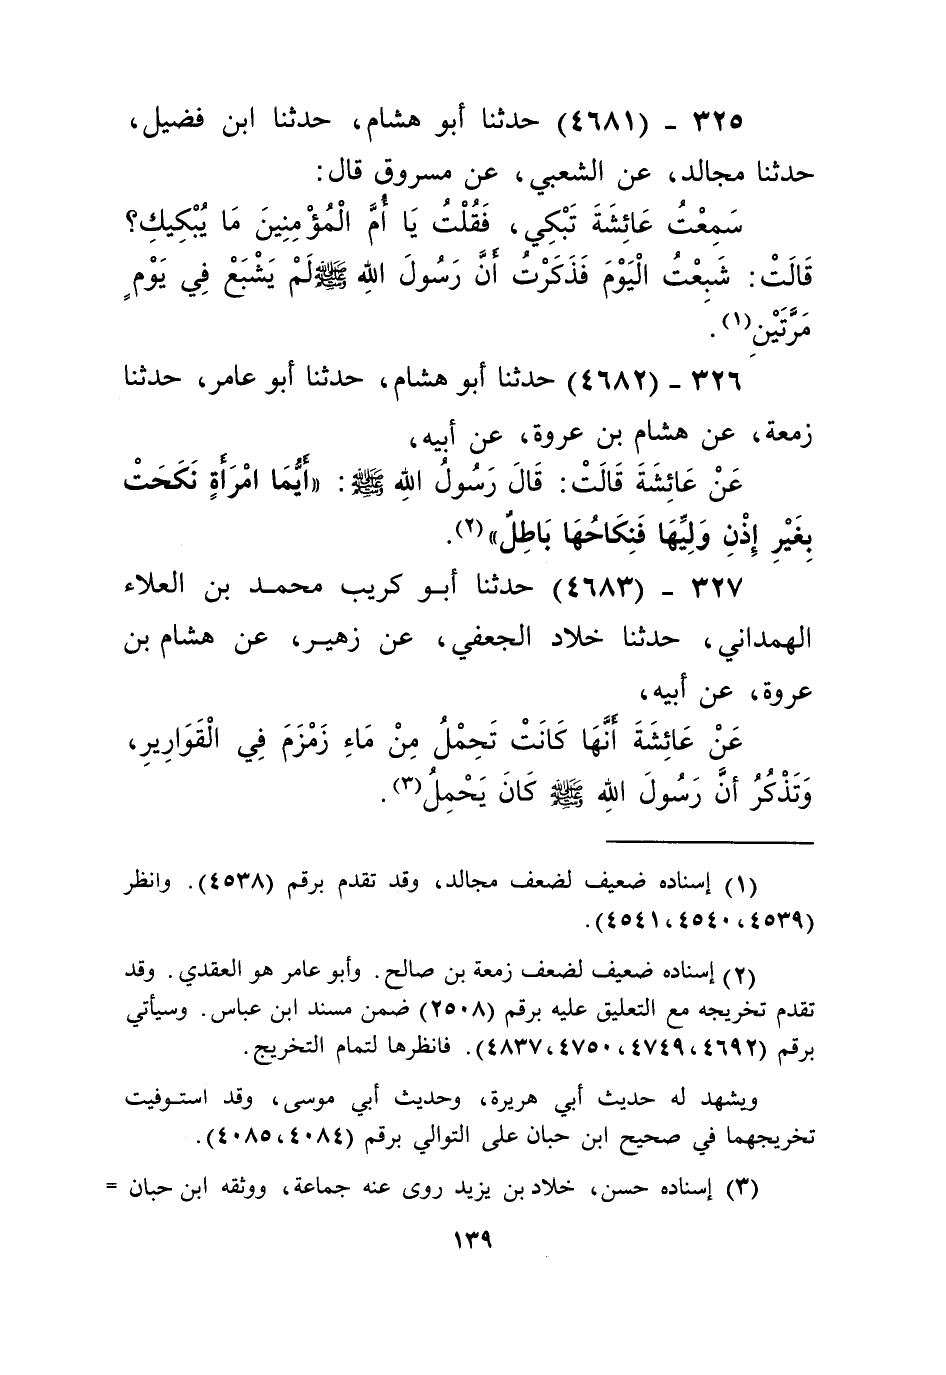 ٣٢٥ ـ (٤٦٨١) حدثنا أبو هشام، حدثنا ابن فضيل،
حدثنا مجالد، عن الشعبي، عن مسروق قال:
سَمِعْتُ عَائِشَةَ تَبْكِي، فَقُلْتُ يَا أُمَّ الْمُؤْمِنِينَ مَا يُبْكِيكِ؟
قَالَتْ: شَبِعْتُ الْيَوْمَ فَذَكَرْتُ أَنَّ رَسُولَ اللهِ ﷺ لَمْ يَشْبَعْ فِي يَوْمٍ
مَرَّتَيْنِ(١).
٣٢٦ ـ (٤٦٨٢) حدثنا أبو هشام، حدثنا أبو عامر، حدثنا
زمعة، عن هشام بن عروة، عن أبيه،
عَنْ عَائِشَةَ قَالَتْ: قَالَ رَسُولُ اللهِ ﷺ: «أَيُّمَا امْرَأَةٍ نَكَحَتْ
بِغَيْرِ إِذْنِ وَلِيِّهَا فَنِكَاحُهَا بَاطِلٌ»(٢).
٣٢٧ ـ (٤٦٨٣) حدثنا أبو كريب محمد بن العلاء
الهمداني، حدثنا خلاد الجعفي، عن زهير، عن هشام بن
عروة، عن أبيه،
عَنْ عَائِشَةَ أَنَّهَا كَانَتْ تَحِمْلُ مِنْ مَاءِ زَمْزَمَ فِي الْقَوَارِيرِ،
وَتَذْكُرُ أنَّ رَسُولَ اللهِ ﷺ كَانَ يَحْمِلُ(٣).
(١) إسناده ضعيف لضعف مجالد، وقد تقدم برقم (٤٥٣٨). وانظر
(٤٥٣٩، ٤٥٤٠، ٤٥٤١).
(٢) إسناده ضعيف لضعف زمعة بن صالح. وأبو عامر هو العقدي. وقد
تقدم تخريجه مع التعليق عليه برقم (٢٥٠٨) ضمن مسند ابن عباس. وسيأتي
برقم (٤٦٩٢، ٤٧٤٩، ٤٧٥٠، ٤٨٣٧). فانظرها لتمام التخريج.
ويشهد له حديث أبي هريرة، وحديث أبي موسى، وقد استوفيت
تخريجهما في صحيح ابن حبان على التوالي برقم (٤٠٨٤، ٤٠٨٥).
(٣) إسناده حسن، خلاد بن يزيد روى عنه جماعة، ووثقه ابن حبان =
١٣٩